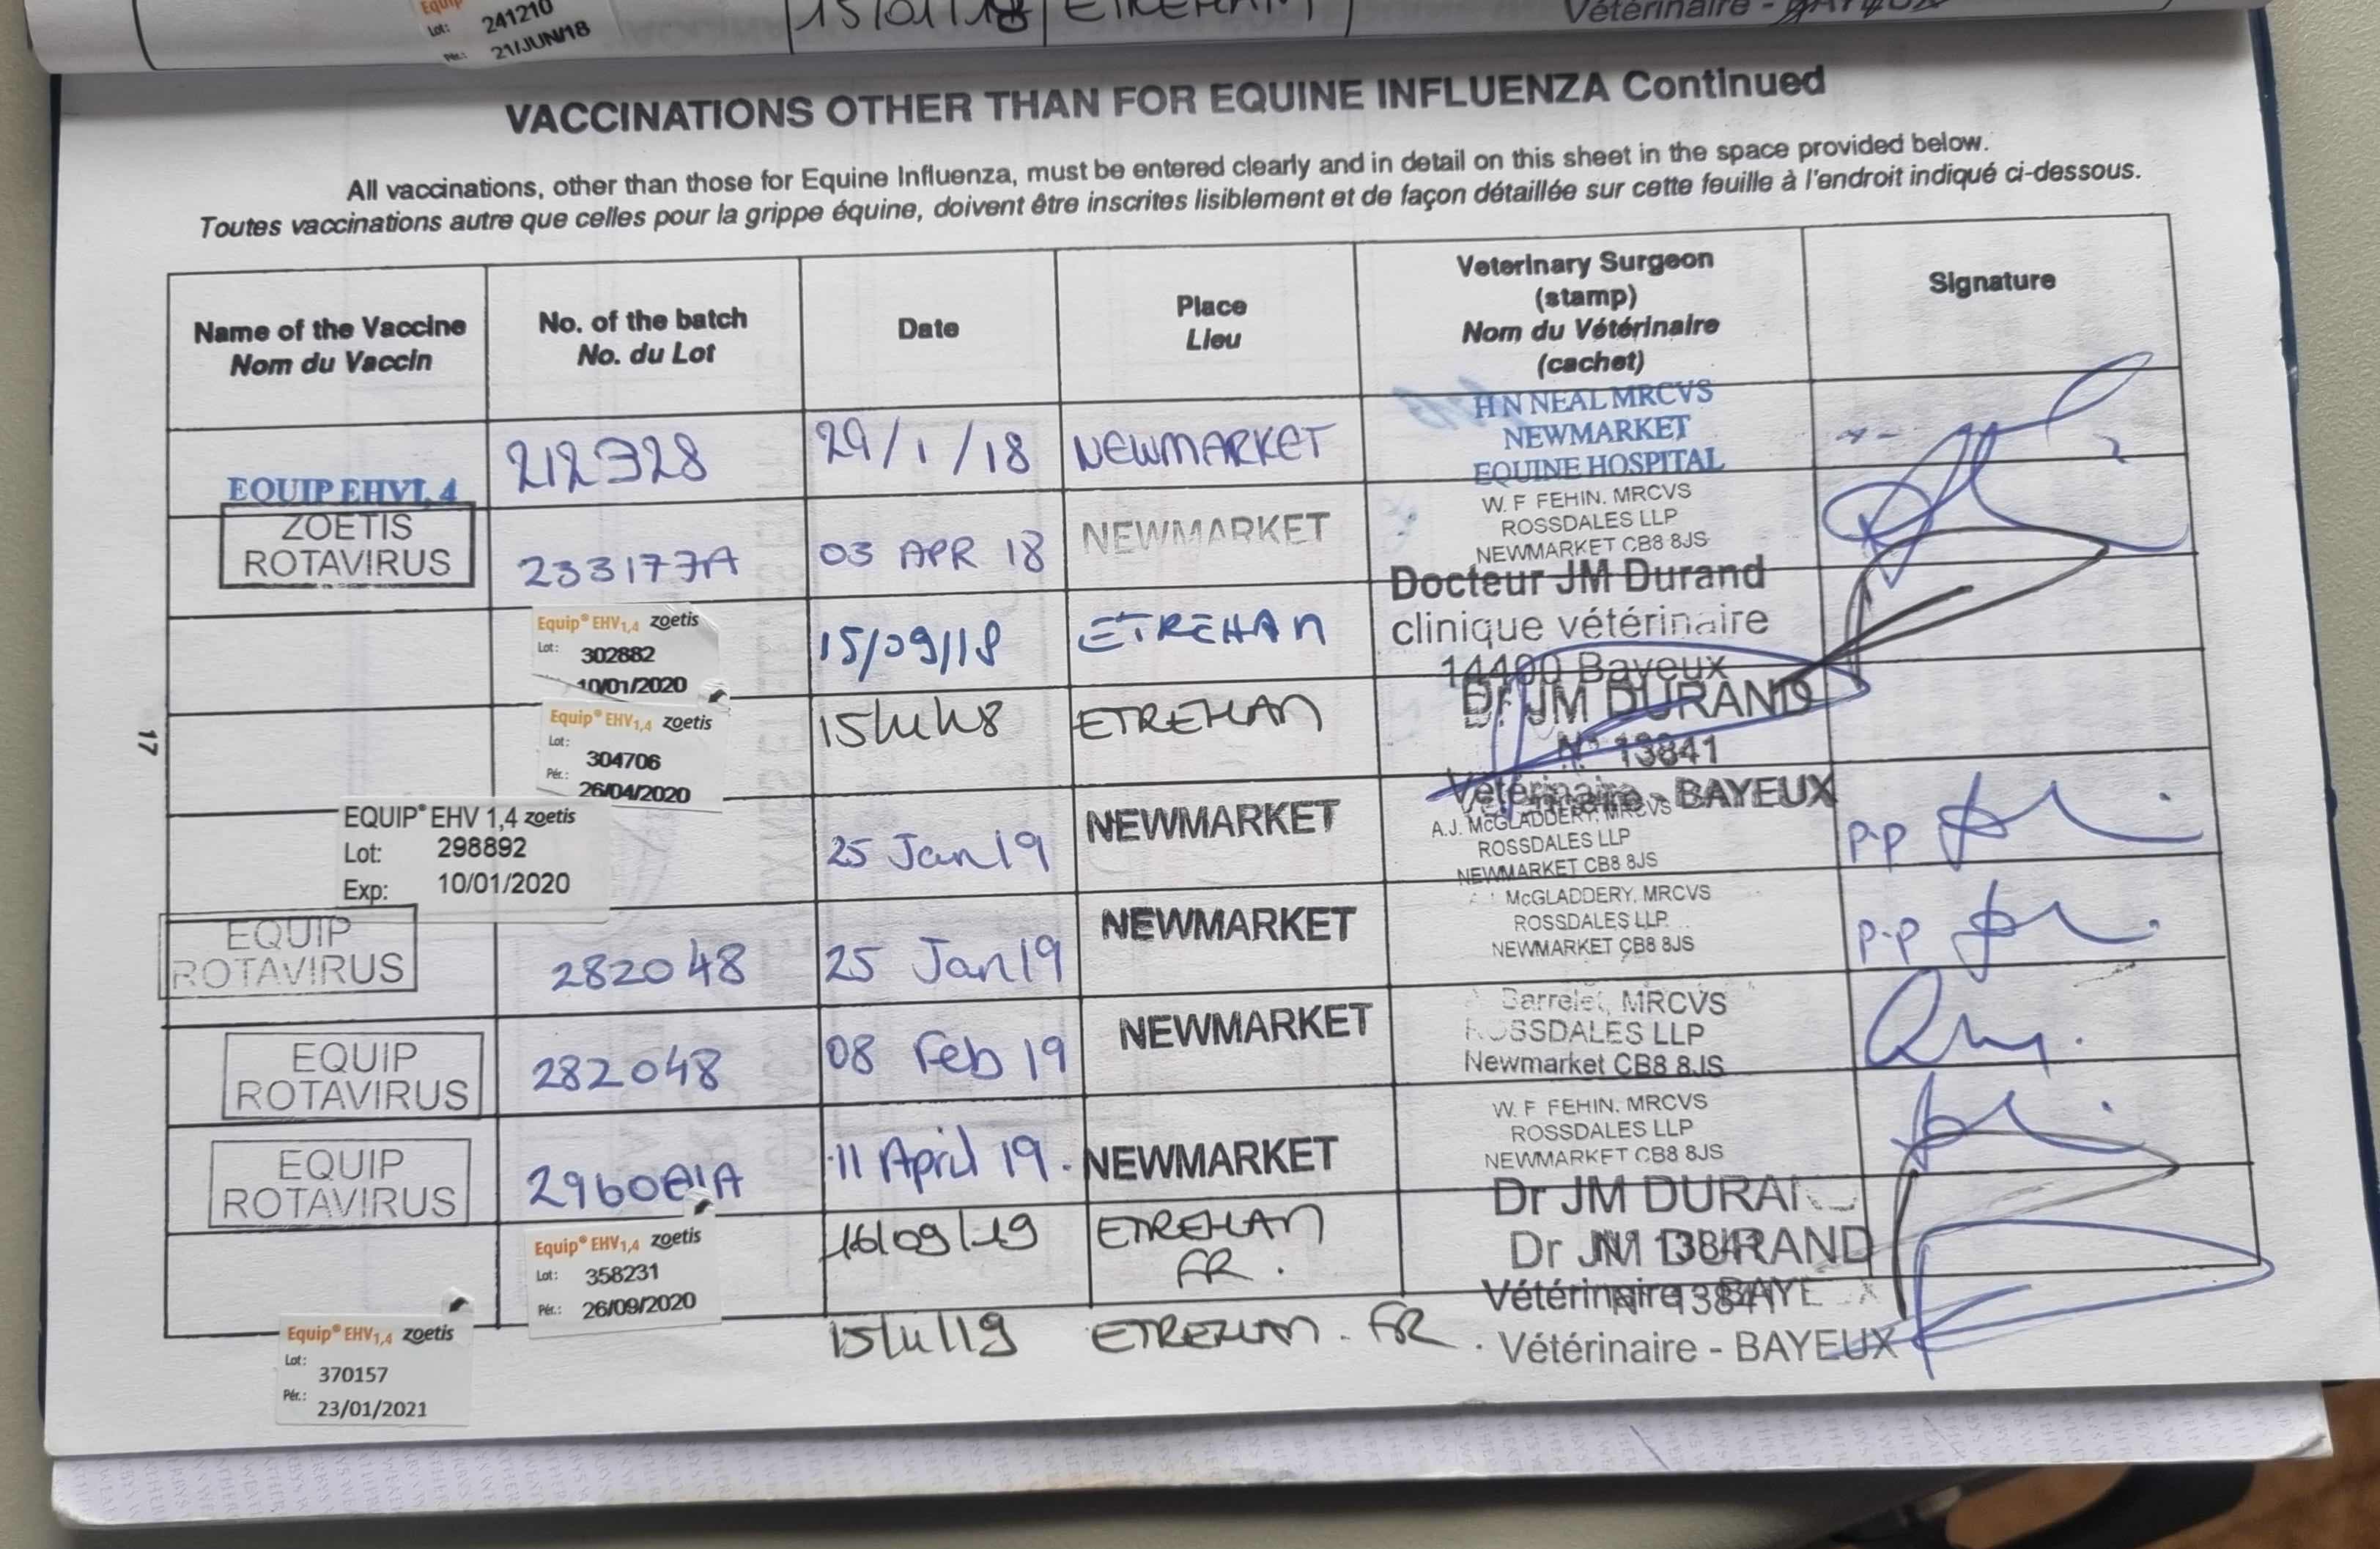 Equip
Lot: 241210
Pér.: 21/JUN/18
15/01/18 ETREHAM
Vétérinaire - BAYEUX
VACCINATIONS OTHER THAN FOR EQUINE INFLUENZA Continued
All vaccinations, other than those for Equine Influenza, must be entered clearly and in detail on this sheet in the space provided below.
Toutes vaccinations autre que celles pour la grippe équine, doivent être inscrites lisiblement et de façon détaillée sur cette feuille à l'endroit indiqué ci-dessous.
Name of the Vaccine
Nom du Vaccin
No. of the batch
No. du Lot
Date
Place
Lieu
Veterinary Surgeon
(stamp)
Nom du Vétérinaire
(cachet)
Signature
EQUIP EHV1,4
212328
29/1/18
NEWMARKET
H N NEAL MRCVS
NEWMARKET
EQUINE HOSPITAL
ZOETIS
ROTAVIRUS
233177A
03 APR 18
NEWMARKET
W. F FEHIN. MRCVS
ROSSDALES LLP
NEWMARKET CB8 8JS
Equip® EHV1,4 zoetis
Lot: 302882
10/01/2020
15/09/18
ETREHAM
Docteur JM Durand
clinique vétérinaire
14400 Bayeux
Equip® EHV1,4 zoetis
Lot: 304706
Pér.: 26/04/2020
15/11/18
ETREHAM
Dr JM DURAND
N° 13841
Vétérinaire - BAYEUX
17
EQUIP® EHV 1,4 zoetis
Lot: 298892
Exp: 10/01/2020
25 Jan 19
NEWMARKET
A.J. McGLADDERY, MRCVS
ROSSDALES LLP
NEWMARKET CB8 8JS
p.p
EQUIP
ROTAVIRUS
282048
25 Jan 19
NEWMARKET
McGLADDERY, MRCVS
ROSSDALES LLP
NEWMARKET CB8 8JS
p.p
EQUIP
ROTAVIRUS
282048
08 Feb 19
NEWMARKET
Barrelet, MRCVS
ROSSDALES LLP
Newmarket CB8 8JS
EQUIP
ROTAVIRUS
11 April 19.
NEWMARKET
W. F FEHIN. MRCVS
ROSSDALES LLP
NEWMARKET CB8 8JS
Equip® EHV1,4 zoetis
Lot: 358231
Pér.: 26/09/2020
16/09/19
ETREHAM
FR.
Dr JM DURAND
N° 13841
Vétérinaire - BAYEUX
Equip® EHV1,4 zoetis
Lot: 370157
Pér.: 23/01/2021
15/11/19
ETREHAM - FR.
Dr JM DURAND
N° 13841
Vétérinaire - BAYEUX